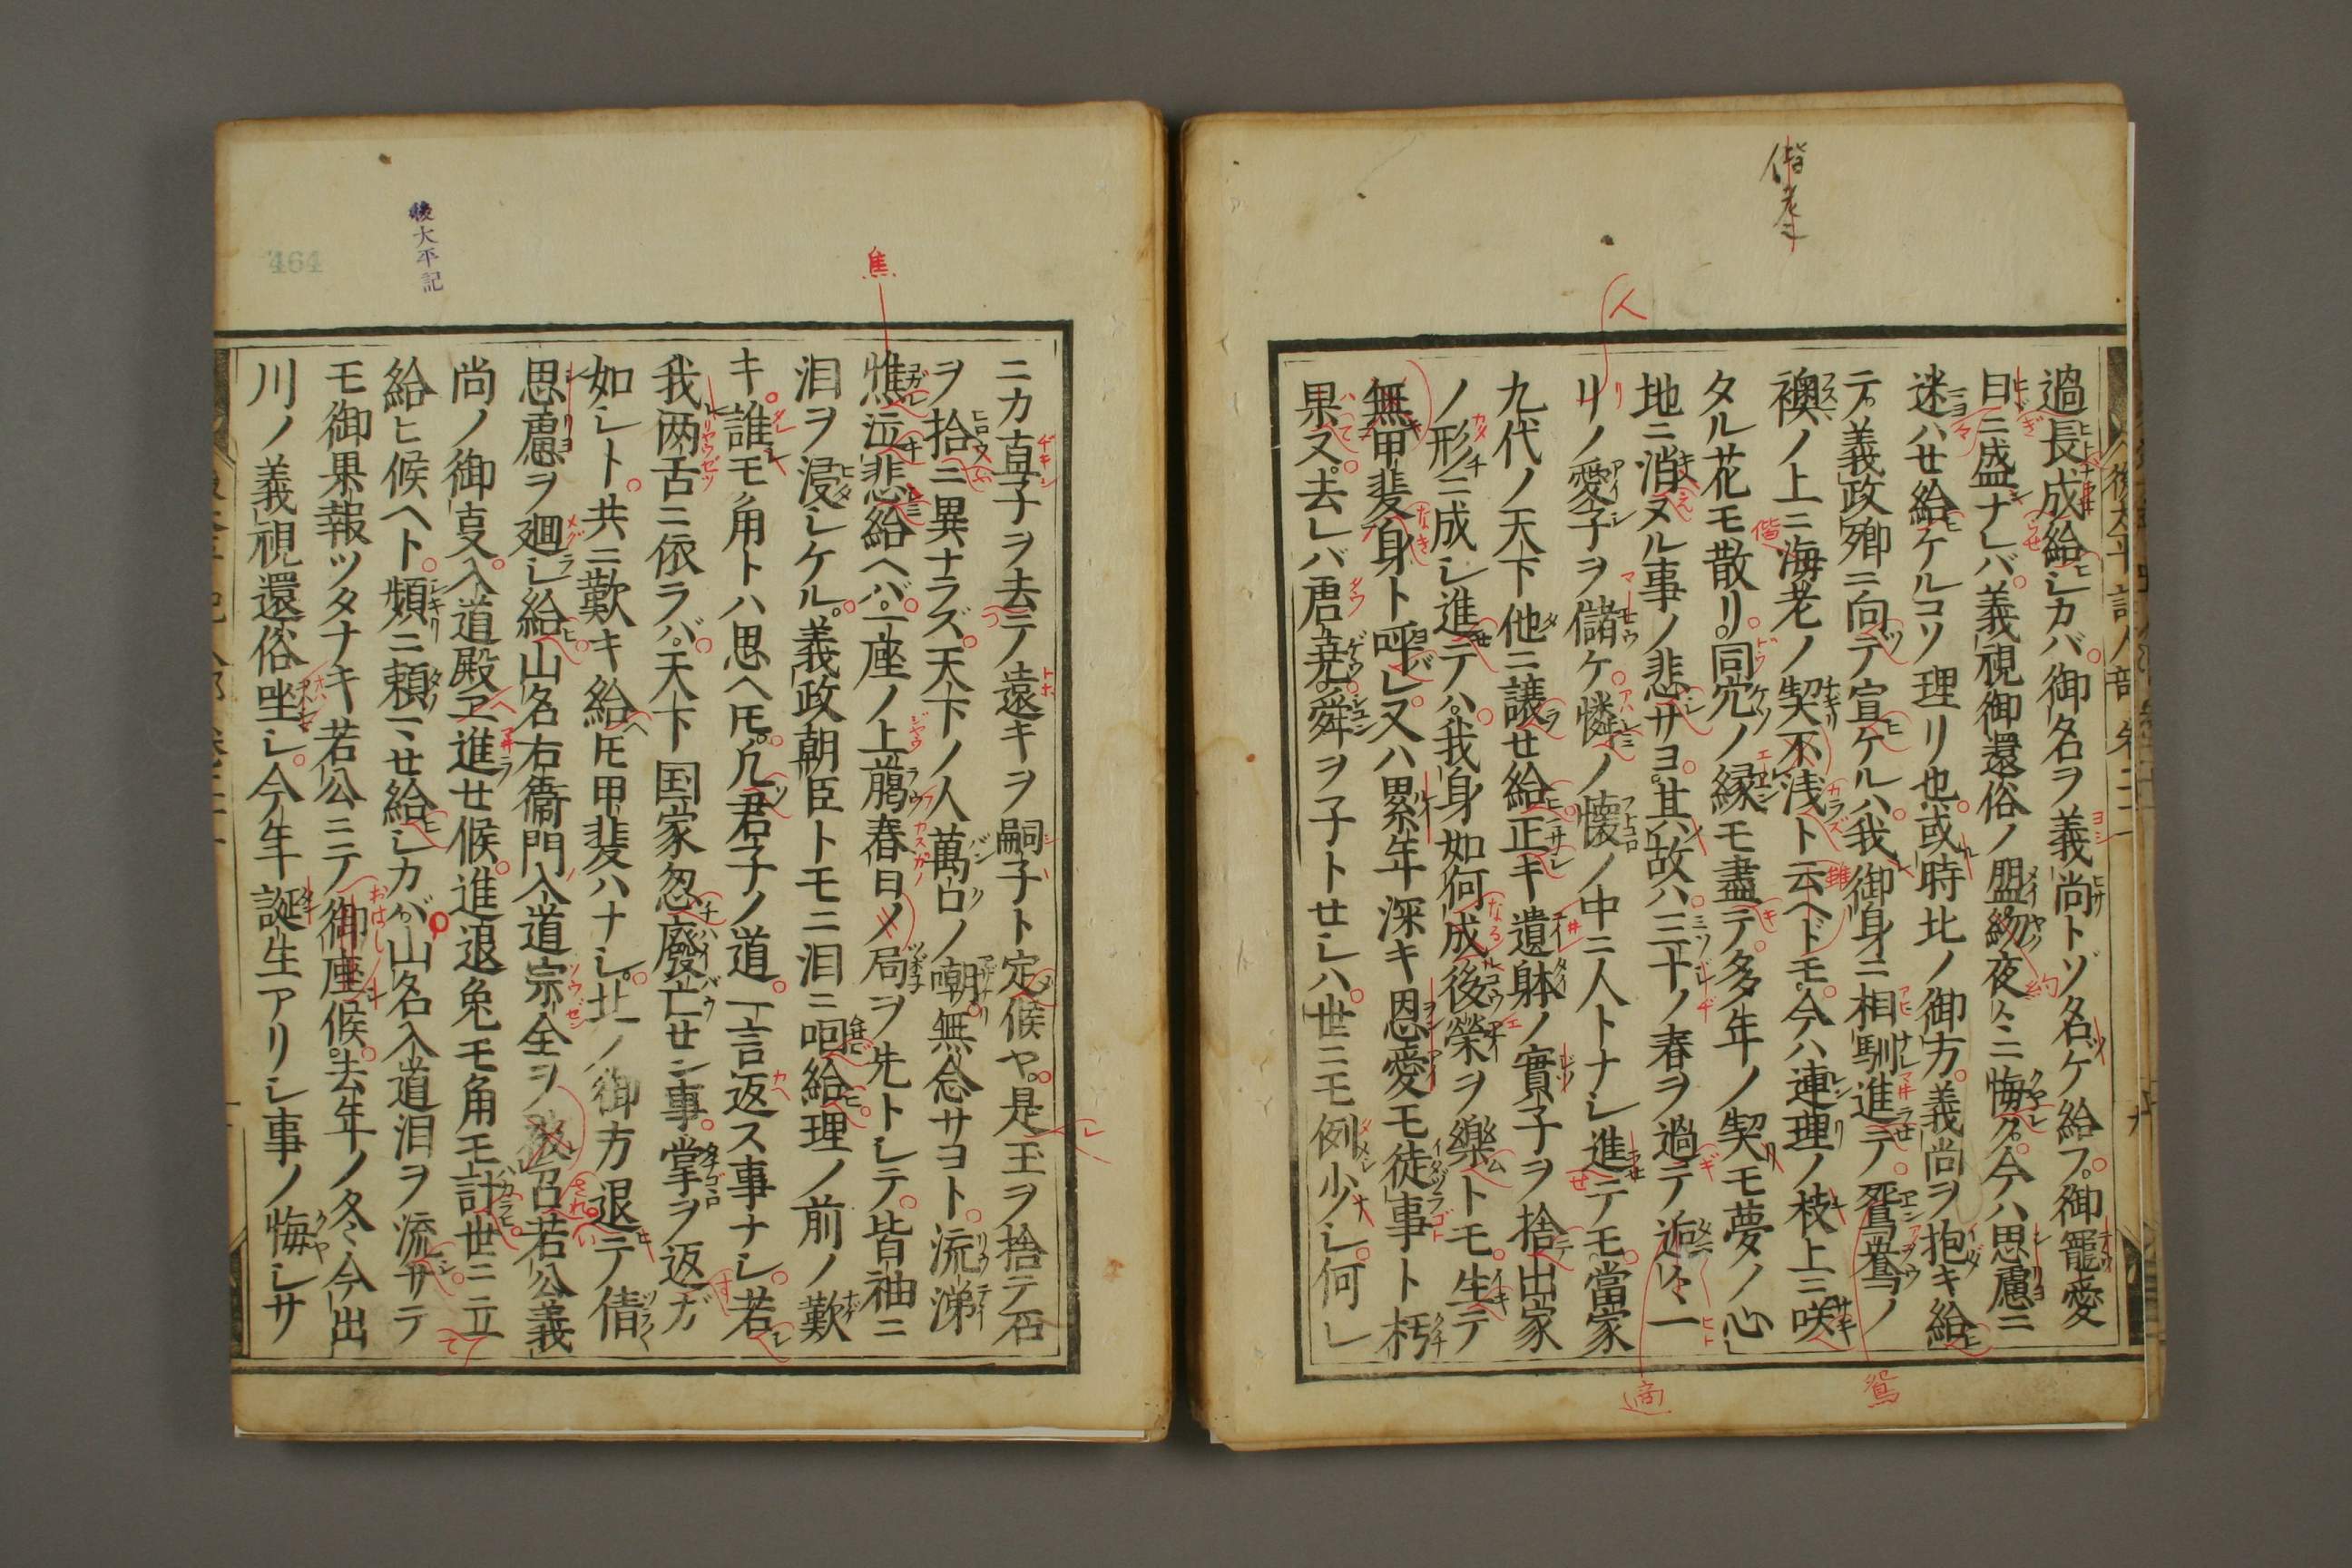 過長成給シカバ御名ヲ義尚トゾ名ケ給フ御寵愛
日ニ盛ナレバ義視御還俗ノ盟約夜々ニ悔ク今ハ思慮ニ
迷ハセ給ケルコソ理リ也或時北ノ御方義尚ヲ抱キ給
テ義政卿ニ向テ宣ケルハ我御身ニ相馴進テ鴛鴦ノ
襖ノ上ニ海老ノ契不浅ト云ヘドモ今ハ連理ノ枝上ニ咲
タル花モ散リ同穴ノ縁モ盡テ多年ノ契モ夢ノ心
地ニ消ヌル事ノ悲サヨ其故ハ三十ノ春ヲ過テ近々一
リノ愛子ヲ儲ケ憐ノ懐ノ中ニ人トナシ進テモ當家
九代ノ天下他ニ譲セ給正キ遺躰ノ實子ヲ捨出家
ノ形ニ成シ進テハ我身如何成後榮ヲ樂トモ生テ
無甲斐身ト呼レ又ハ累年深キ恩愛モ徒事ト朽
果又去レバ君堯舜ヲ子トセシハ世ニモ例少シ何レ
偕老
人
偕
約
適
鴛
ニカ直子ヲ去テ遠キヲ嗣子ト定候ヤ是玉ヲ捨テ石
ヲ拾ニ異ナラズ天下ノ人萬口ノ嘲無念サヨト流涕
憔泣悲給ヘバ一座ノ上﨟春日ノ局ヲ先トシテ皆袖ニ
泪ヲ浸シケル義政朝臣トモニ泪ニ咽給理ノ前ノ歎
キ誰モ角トハ思ヘ𪜈凡君子ノ道一言返ス事ナシ若
我両舌ニ依ラバ天下国家忽廢亡セン事掌ヲ返ガ
如シト共ニ歎キ給𪜈甲斐ハナシ北ノ御方退テ倩
思慮ヲ廻シ給山名右衛門入道宗全ヲ召若公義
尚ノ御叓入道殿ヱ進セ候進退免モ角モ計世ニ立
給ヒ候ヘト頻ニ頼マセ給シカバ山名入道泪ヲ流サテ
モ御果報ツタナキ若公ニテ御座候去年ノ冬今出
川ノ義視還俗坐シ今年誕生アリシ事ノ悔シサ
焦
後太平記
464